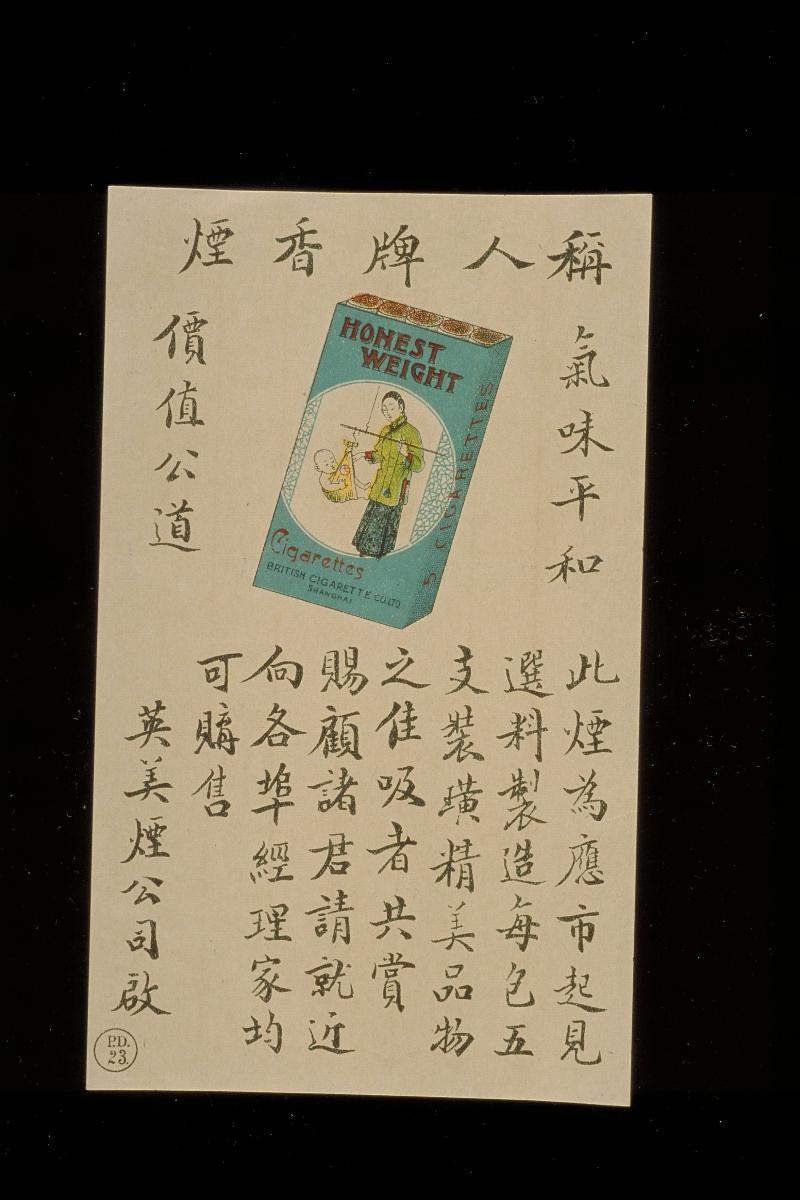 稱人牌香煙
氣味平和
價值公道
HONEST
WEIGHT
5 CIGARETTES
Cigarettes
BRITISH CIGARETTE CO. LTD
SHANGHAI
此煙為應市起見
選料製造每包五
支裝璜精美品物
之佳吸者共賞
賜顧諸君請就近
向各埠經理家均
可購售
英美煙公司啟
P.D.
23.